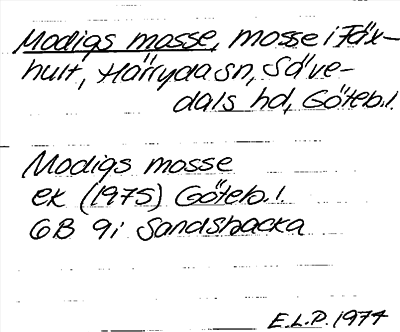 Modigs mosse, mosse i Fäx-
hult, Härryda sn, Säve-
dals hd, Göteb.l.
Modigs mosse
ek (1975) Göteb.l.
6B 9i Sandsbacka
E.L.P. 1974